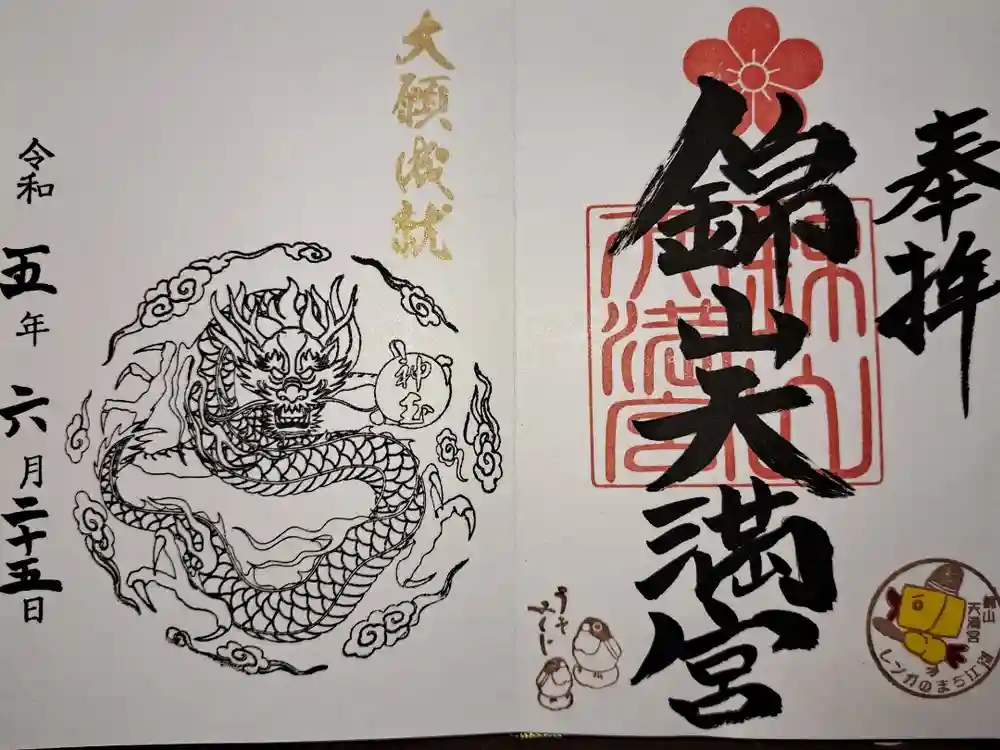 奉拝
錦山天満宮
錦山天満宮
錦山
天満宮
レンガのまち江別
うそ
みくじ
大願成就
神玉
令和五年六月二十五日